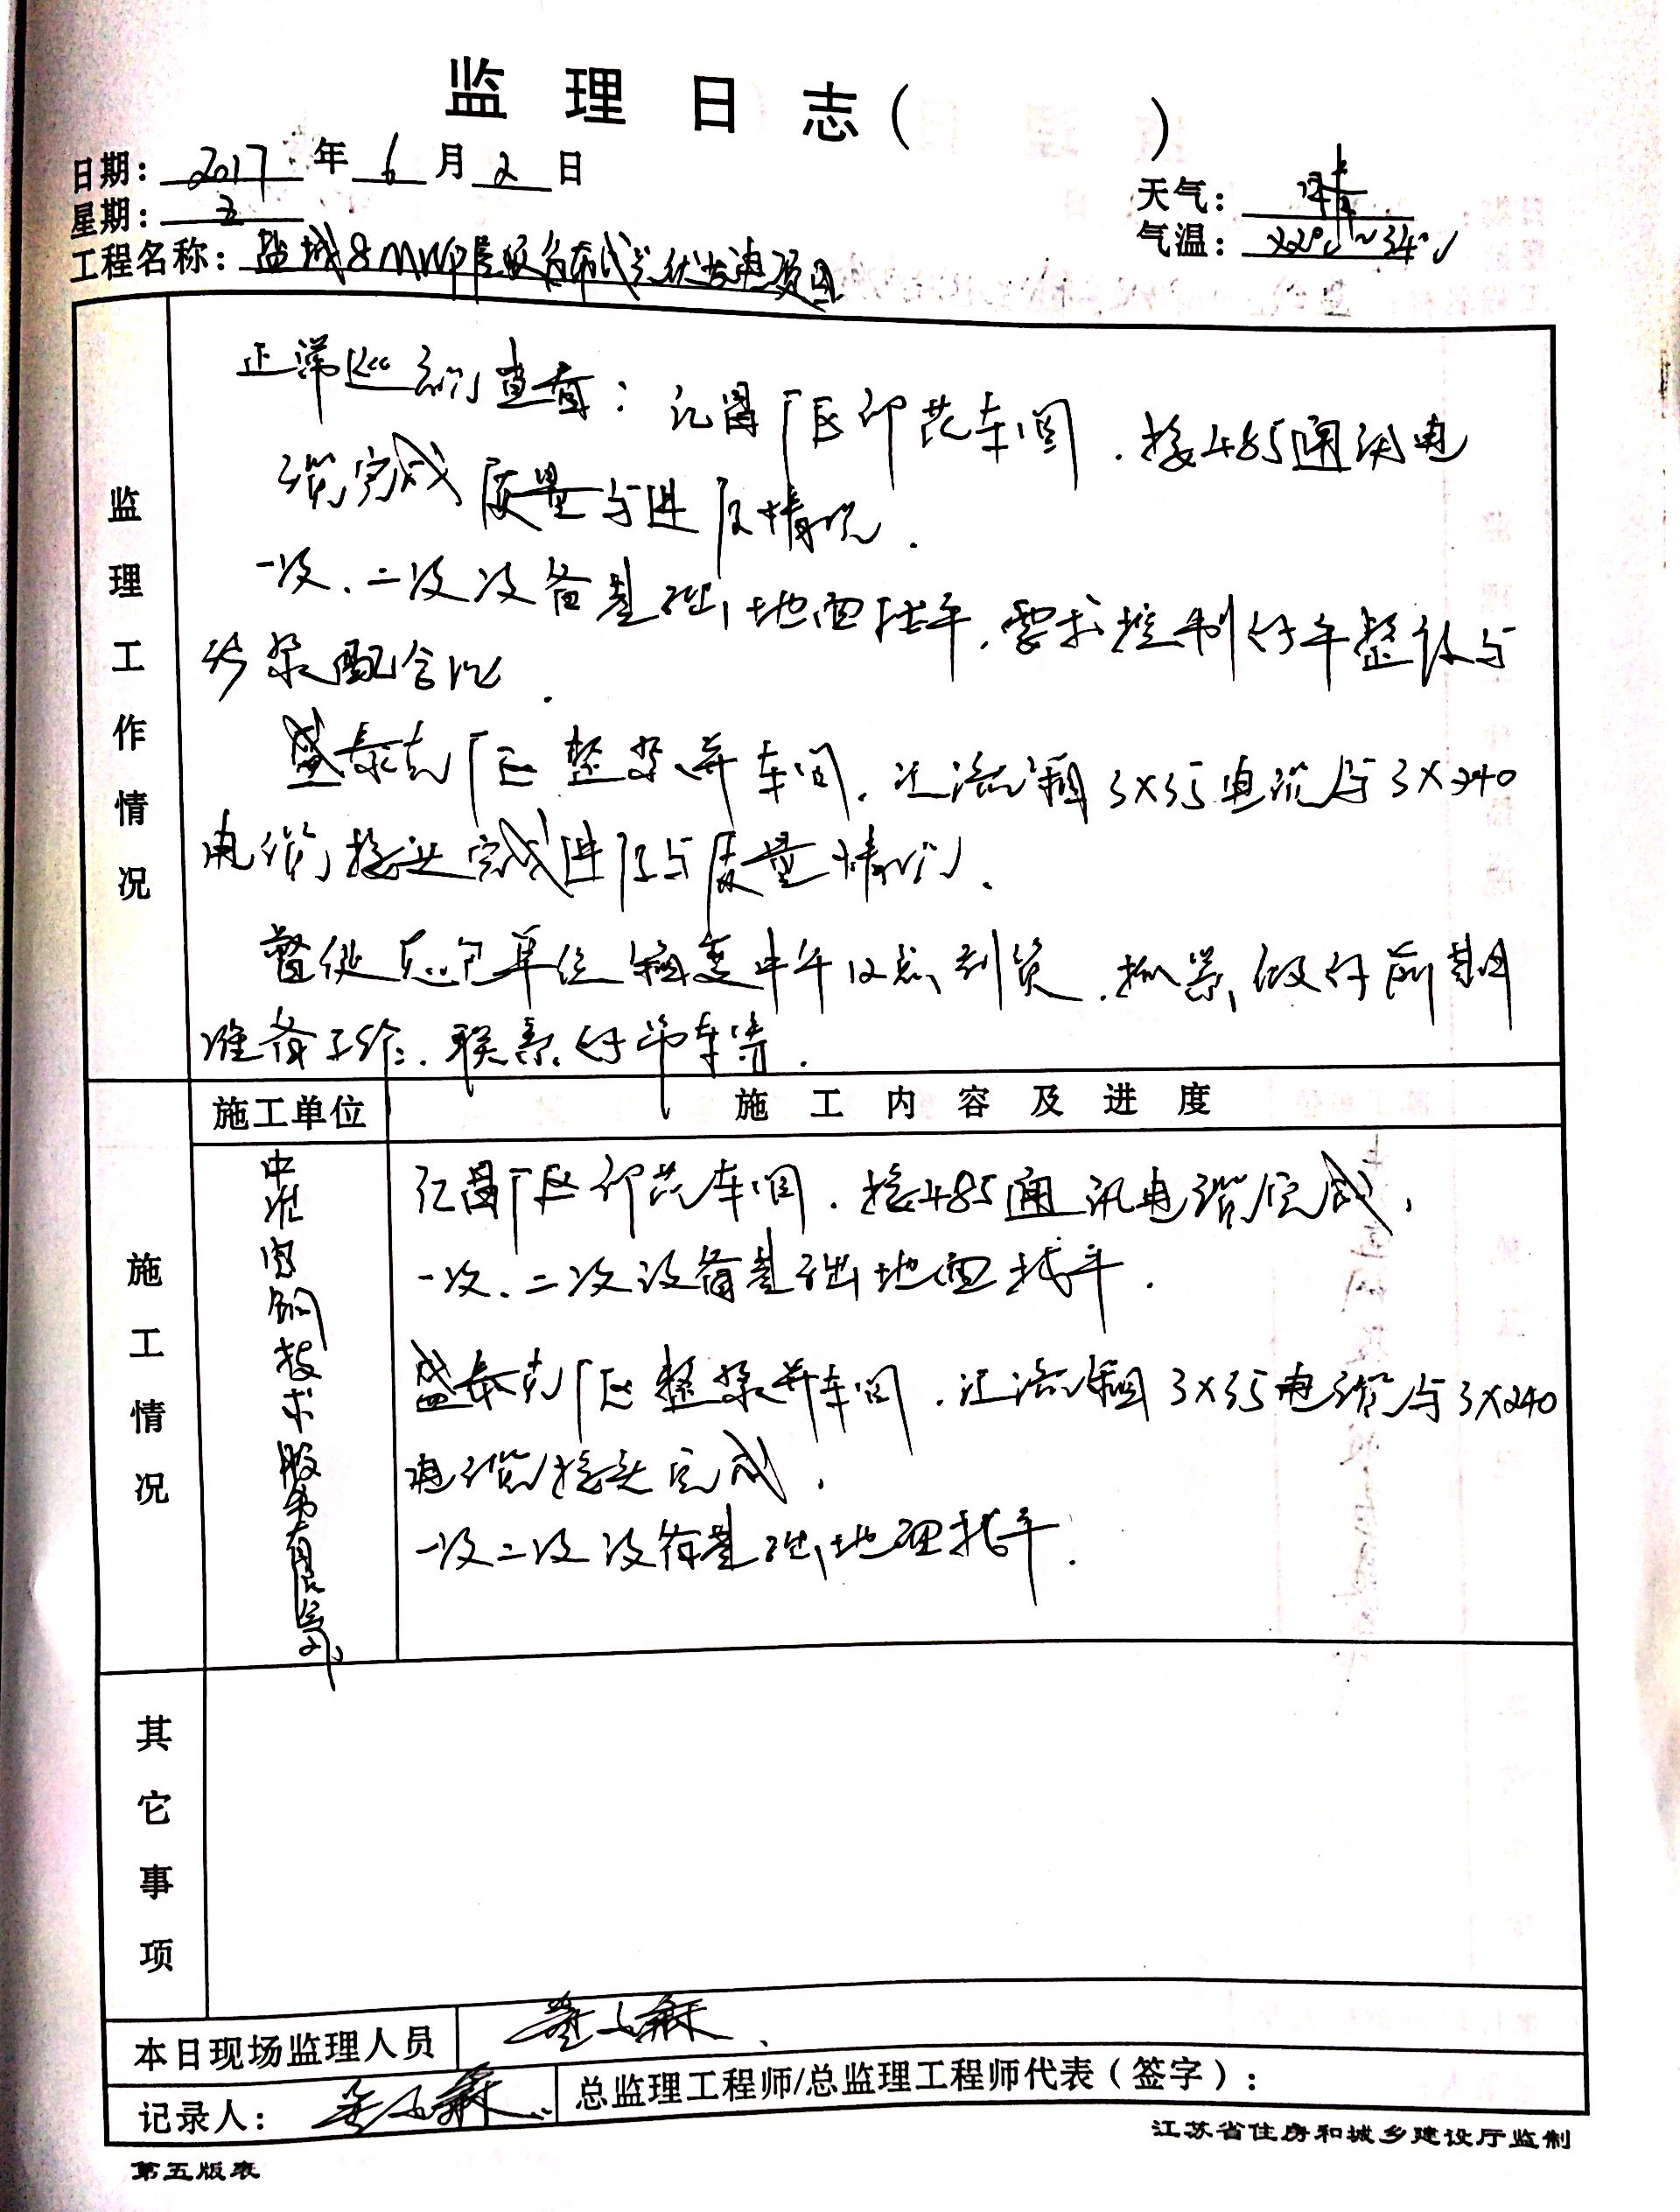 监理日志（ ）
日期：2017年6月2日
天气：晴
星期：五
气温：22°～34°
工程名称：盐城8MWP屋顶分布式光伏发电项目
监理工作情况
正常巡视查看：亿昌厂区印花车间．接485通讯电
缆完成质量与进度情况．
一次．二次设备基础地面找平．要求控制好平整度与
砂浆配合比．
盛泰克厂区整浆并车间．汇流箱3X35电缆与3X240
电缆接头完成进度与质量情况．
督促总包单位箱变中午12点到货．抓紧做好前期
准备工作．联系好吊车等．
施工情况
施工单位
施工内容及进度
技术股份有限公司
亿昌厂区印花车间．接485通讯电缆完成．
一次．二次设备基础地面找平．
盛泰克厂区整浆并车间．汇流箱3X35电缆与3X240
电缆接头完成．
一次二次设备基础地理找平．
其它事项
本日现场监理人员
记录人：
总监理工程师/总监理工程师代表（签字）：
江苏省住房和城乡建设厅监制
第五版表